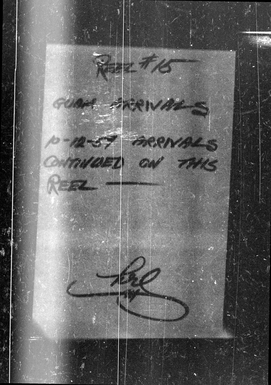 REEL #15
GUAM ARRIVALS
10-12-59 ARRIVALS
CONTINUED ON THIS
REEL —